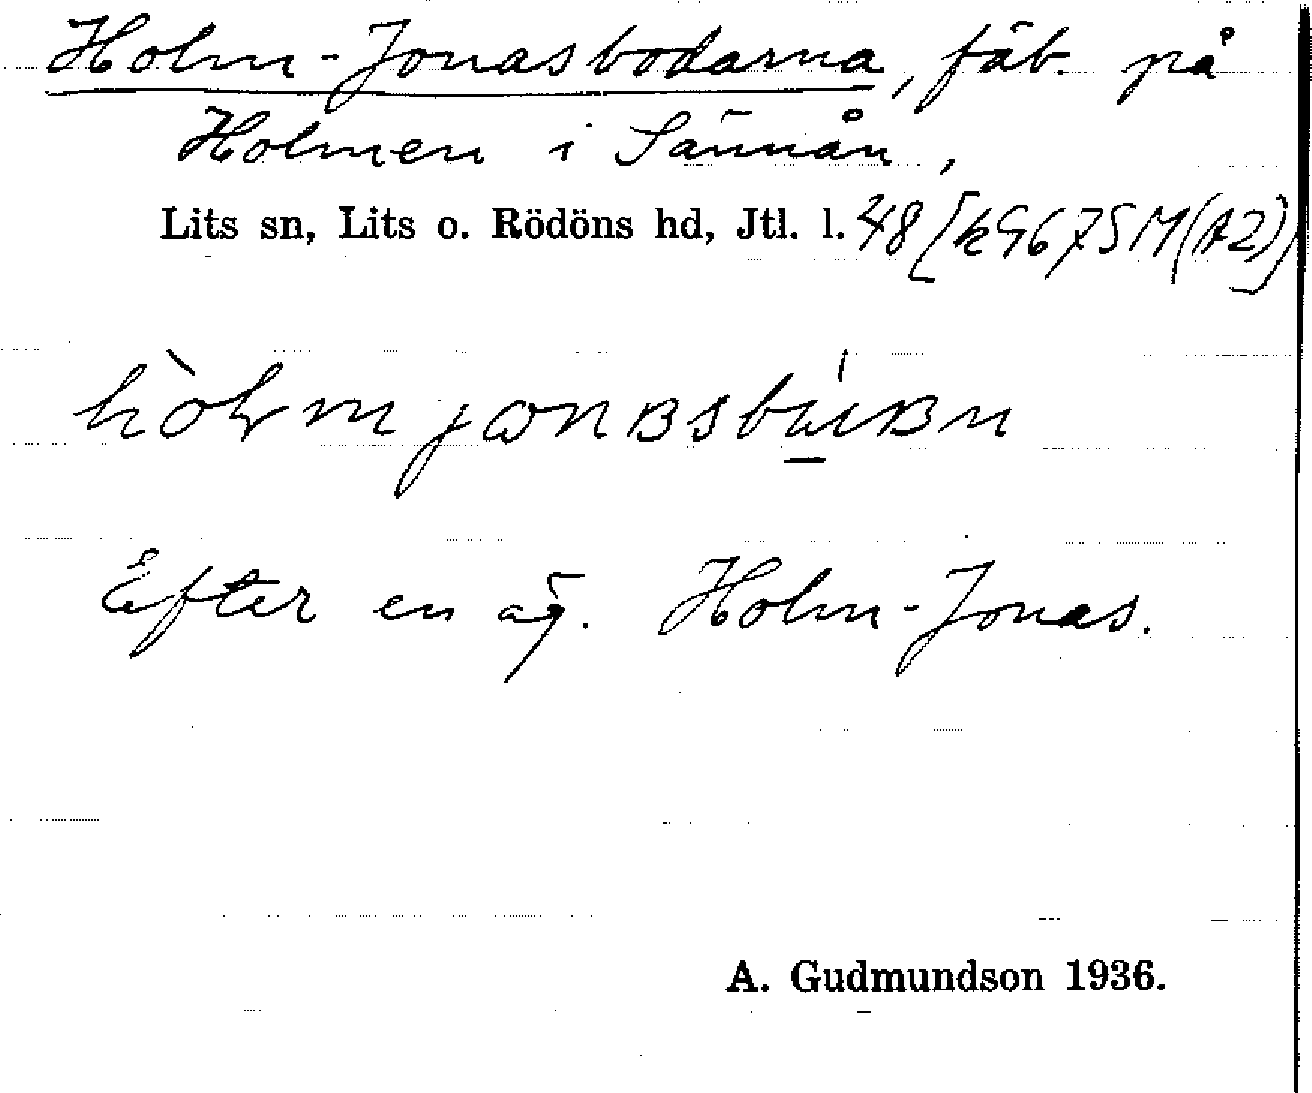 Holm-Jonasbodarna, fäb. på
Holmen i Sännån,
Lits sn, Lits o. Rödöns hd, Jtl. l. 48 [k 9675 M (A2)]
Efter en äg. Holm-Jonas.
A. Gudmundson 1936.